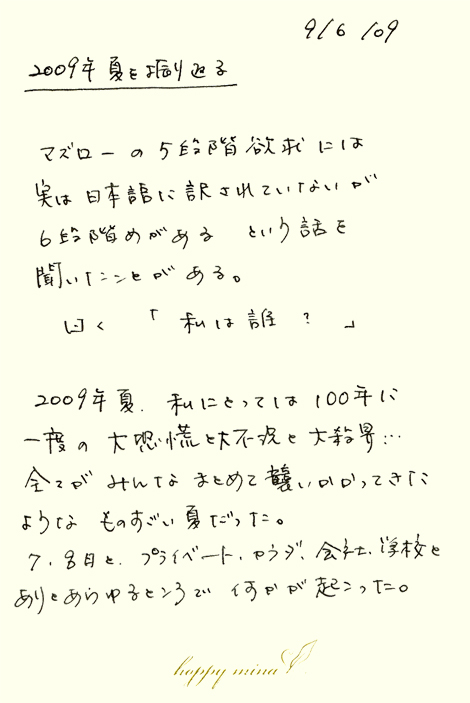 9/6/09
2009年 夏を振り返る
マズローの5段階欲求には
実は日本語に訳されていないが
6段階めがある という話を
聞いたことがある。
曰く 「私は誰？」
2009年夏. 私にとっては100年に
一度の大恐慌と大不況と大殺界…
全てがみんなまとめて襲いかかってきた
ような ものすごい夏だった。
7、8月と、プライベート、カラダ、会社、学校と
ありとあらゆるところで 何かが起こった。
happy mina